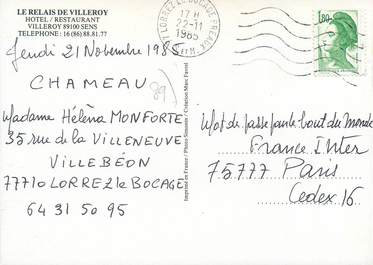 LE RELAIS DE VILLEROY
HOTEL / RESTAURANT
VILLEROY 89100 SENS
TELEPHONE : 16 (86) 88.81.77
Jeudi 21 Novembre 1985
CHAMEAU
89
Madame Hélèna MONFORTE
35 rue de la VILLENEUVE
VILLEBÉON
77710 LORREZ le BOCAGE
64 31 50 95
Imprimé en France / Photo Simeone / Création Marc Favrel
77 LORREZ LE BOCAGE PREAUX
17 H
22-11
1985
S ET M.
1,80
Mot de passe pour le bout du Monde
France Inter
75777 Paris
Cedex 16